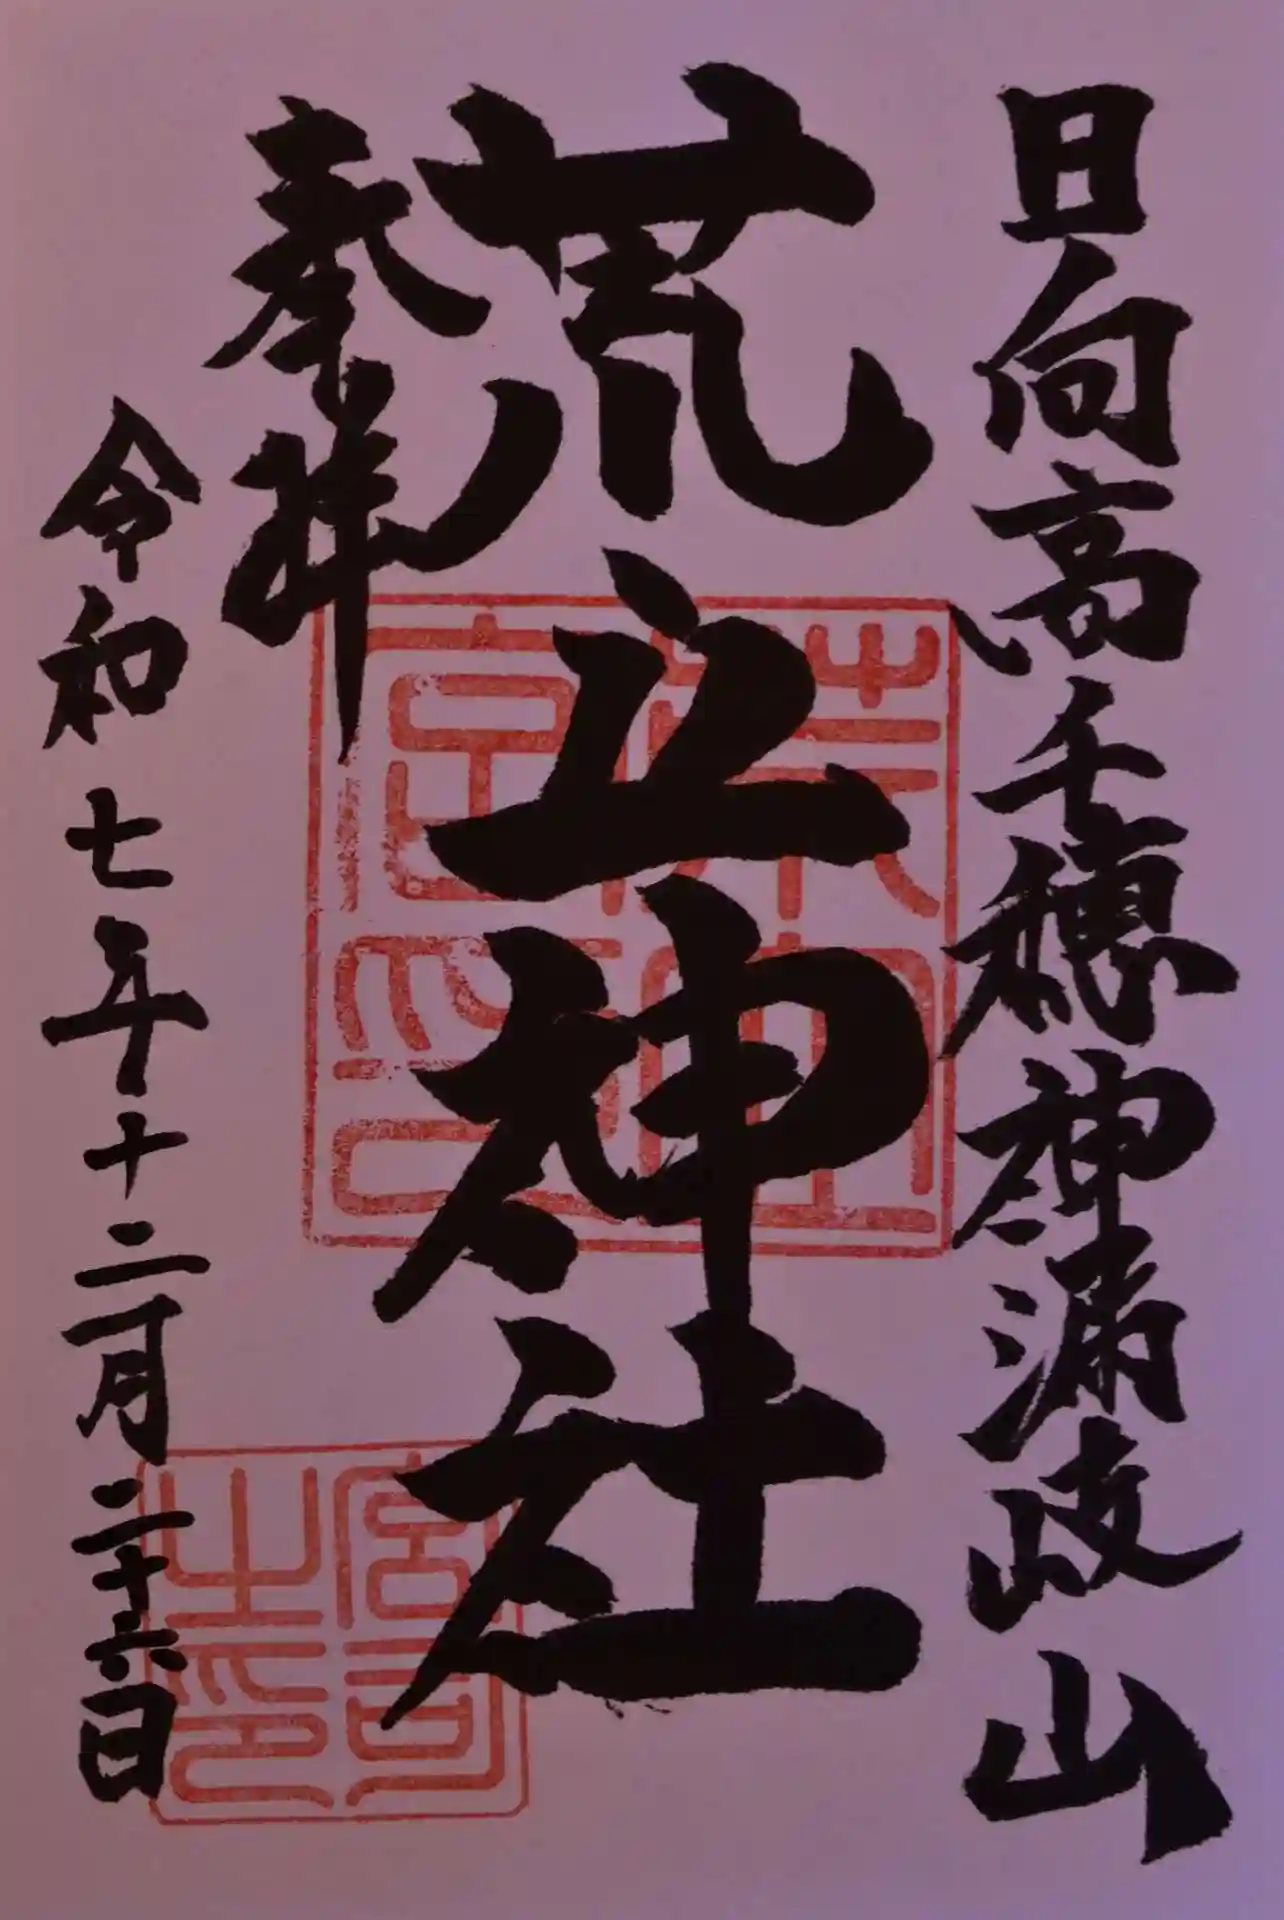 日向高千穂神漏岐山
荒立神社
奉拝
令和七年十二月二十六日
荒立宮印
宮司之印